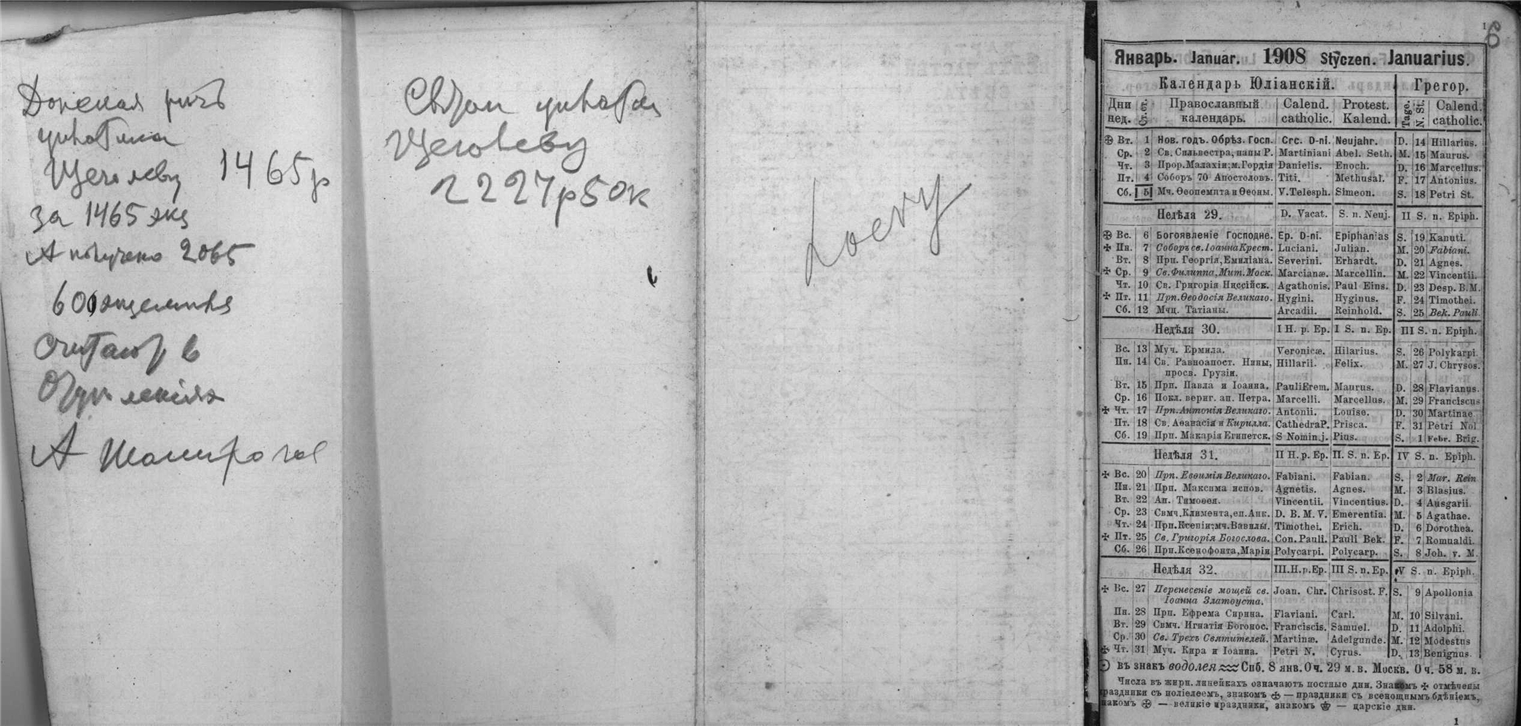 Донская речь
уплатила
Щеголеву 1465р
за 1465 экз
А получено 2065
600 экземпляр
считаюр в
А
Связи уплатил
Щеголеву
2227р50к
Loevy
6
1
Январь. Januar. 1908 Styczen. Januarius.
Календарь Юліанскій. Грегор.
Дни нед. Православный календарь. Calend. catholic. Protest. Kalend. Tage. N. St. Calend. catholic.
Вт. 1 Нов. годъ. Обрѣз. Госп. Crc. D-ni. Neujahr. D. 14 Hillarius.
Ср. 2 Св. Сильвестра, папы Р. Martiniani Abel. Seth. M. 15 Maurus.
Чт. 3 Прор. Малахіи; м. Гордія Danielis. Enoch. D. 16 Marcellus.
Пт. 4 Соборъ 70 Апостоловъ. Titi. Methusal. F. 17 Antonius.
Сб. 5 Мч. Ѳеопемпта и Ѳеоны. V. Telesph. Simeon. S. 18 Petri St.
Недѣля 29. D. Vacat. S. n. Neuj. II S. n. Epiph.
Вс. 6 Богоявленіе Господне. Ep. D-ni. Epiphanias S. 19 Kanuti.
Пн. 7 Соборъ св. Іоанна Крест. Luciani. Julian. M. 20 Fabiani.
Вт. 8 Прп. Георгія, Емиліана. Severini. Erhardt. D. 21 Agnes.
Ср. 9 Св. Филиппа, Мит. Моск. Marcianæ. Marcellin. M. 22 Vincentii.
Чт. 10 Св. Григорія Ниссійск. Agathonis. Paul Eins. D. 23 Desp. B. M.
Пт. 11 Прп. Ѳеодосія Великаго. Hygini. Hyginus. F. 24 Timothei.
Сб. 12 Мчц. Татіаны. Arcadii. Reinhold. S. 25 Bek. Pauli
Недѣля 30. I H. p. Ep. I S. n. Ep. III S. n. Epiph.
Вс. 13 Муч. Ермила. Veronicæ. Hilarius. S. 26 Polykarpi.
Пн. 14 Св. Равноапост. Нины, просв. Грузіи. Hillarii. Felix. M. 27 J. Chrysos.
Вт. 15 Прп. Павла и Іоанна. Pauli Erem. Maurus. D. 28 Flavianus.
Ср. 16 Покл. вериг. ап. Петра. Marcelli. Marcellus. M. 29 Franciscus
Чт. 17 Прп. Антонія Великаго. Antonii. Louise. D. 30 Martinae
Пт. 18 Св. Аѳанасія и Кирилла. Cathedra P. Prisca. F. 31 Petri Nol
Сб. 19 Прп. Макарія Египетск. S Nomin. j. Pius. S. 1 Febr. Brig.
Недѣля 31. II H. p. Ep. II. S. n. Ep. IV S. n. Epiph.
Вс. 20 Прп. Евѳимія Великаго. Fabiani. Fabian. S. 2 Mar. Rein
Пн. 21 Прп. Максима испов. Agnetis. Agnes. M. 3 Blasius.
Вт. 22 Ап. Тимоѳея. Vincentii. Vincentius. D. 4 Ansgarii.
Ср. 23 Свмч. Климента, еп. Анк. D. B. M. V. Emerentia. M. 5 Agathae.
Чт. 24 Прп. Ксеніи; мч. Вавилы. Timothei. Erich. D. 6 Dorothea.
Пт. 25 Св. Григорія Богослова. Con. Pauli. Pauli Bek. F. 7 Romualdi.
Сб. 26 Прп. Ксенофонта, Маріи Polycarpi. Polycarp. S. 8 Joh. v. M.
Недѣля 32. III. H. p. Ep. III S. n. Ep. V S. n. Epiph.
Вс. 27 Перенесеніе мощей св. Іоанна Златоуста. Joan. Chr. Chrisost. F. S. 9 Apollonia
Пн. 28 Прп. Ефрема Сирина. Flaviani. Carl. M. 10 Silvani.
Вт. 29 Свмч. Игнатія Богонос. Franciscis. Samuel. D. 11 Adolphi.
Ср. 30 Св. Трехъ Святителей. Martinæ. Adelgunde. M. 12 Modestus
Чт. 31 Муч. Кира и Іоанна. Petri N. Cyrus. D. 13 Benignus
въ знакъ водолея Спб. 8 янв. 0 ч. 29 м. в. Москв. 0 ч. 58 м. в.
Числа въ жирн. линейкахъ означаютъ постные дни. Знакомъ отмѣчены
праздники съ поліелеемъ, знакомъ — праздники съ всенощнымъ бдѣніемъ,
знакомъ — великіе праздники, знакомъ — царскіе дни.
1